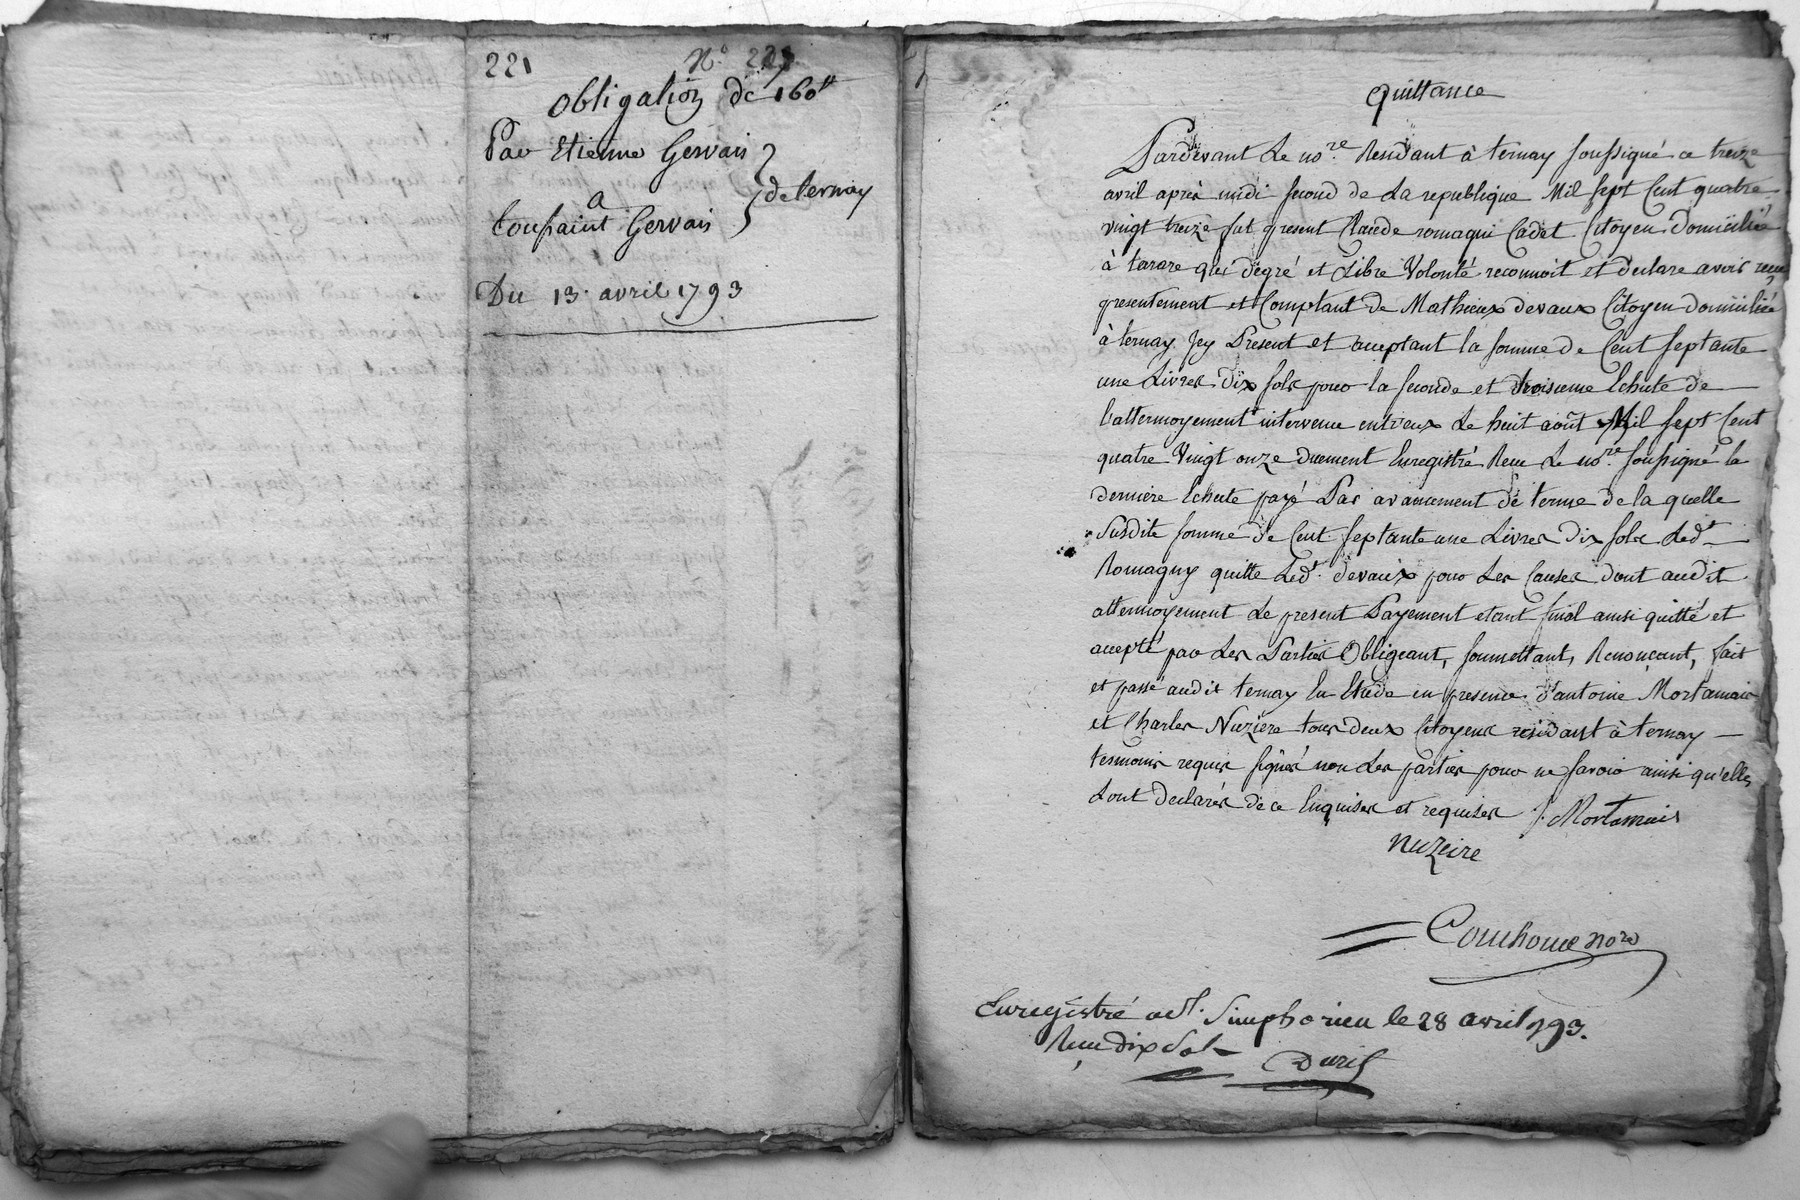 221
N.° 223
Obligation de 160ᵗᵗ
Par Etienne Gervais
de ternay
a
toussaint Gervais
Du 13. avril 1793
Quittance
Pardevant Le no.re Residant à ternay soussigné ce treize
avril après midi second de La republique Mil sept Cent quatre
vingt treize fut present Claude romagni Cadet Citoyen Domicilié
à tarare qui degré et Libre Volonté reconnoit et declare avoir recu
presentement et Comptant de Mathieux devaux Citoyen domicilié
à ternay Jcy Present et acceptant la somme de Cent septante
une Livres dix sols pour la seconde et troisieme Echute de
l'attermoyement intervenue entreux Le huit août Mil sept Cent
quatre Vingt onze duement Enregistré Receu Le no.re soussigné la
derniere Echute payé Par avancement de terme de la quelle
Susdite somme de Cent septante une Livres Dix sols Led.t
Romagny quitte Led.t devaux pour Les Causes dont audit
attermoyement Le present Payement etant final ainsi quitté et
accepté par Les Parties Obligeant, soumettant, Renonçant, fait
et passé audit ternay En Etude en presence d'antoine Mortamais
et Charles Nuziere tous deux Citoyens residant à ternay
tesmoins requis signés non Les parties pour ne savoir ainsi qu'elles
sont Declarés de ce Enquises et requises J. Mortamais
nuzeire
Comhome no.re
Enregistré a St. Simphorien le 28 avril 1793.
Recu dix sols
Duris